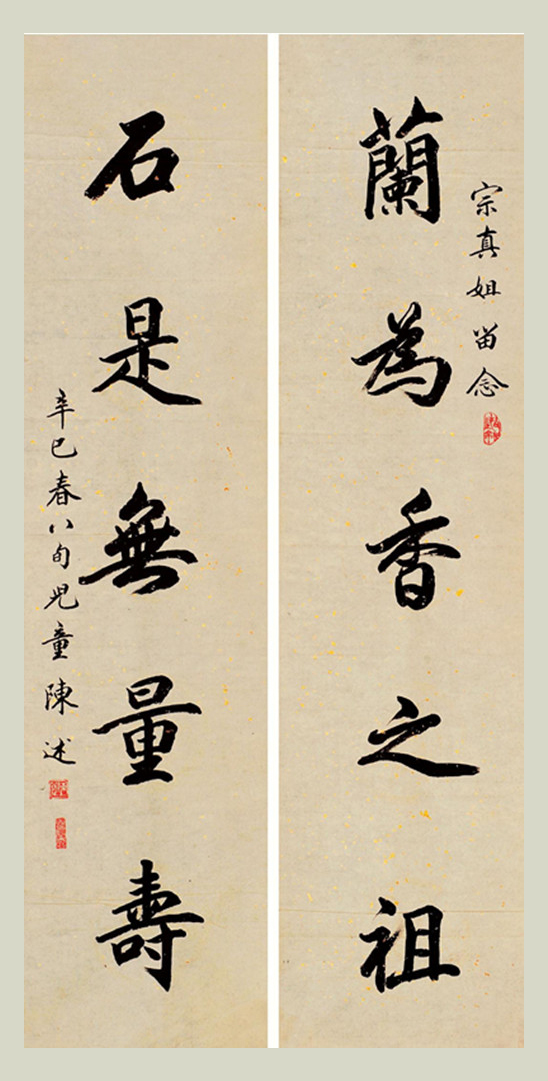 宗真姐留念
蘭為香之祖
石是無量壽
辛巳春八旬兒童陳述